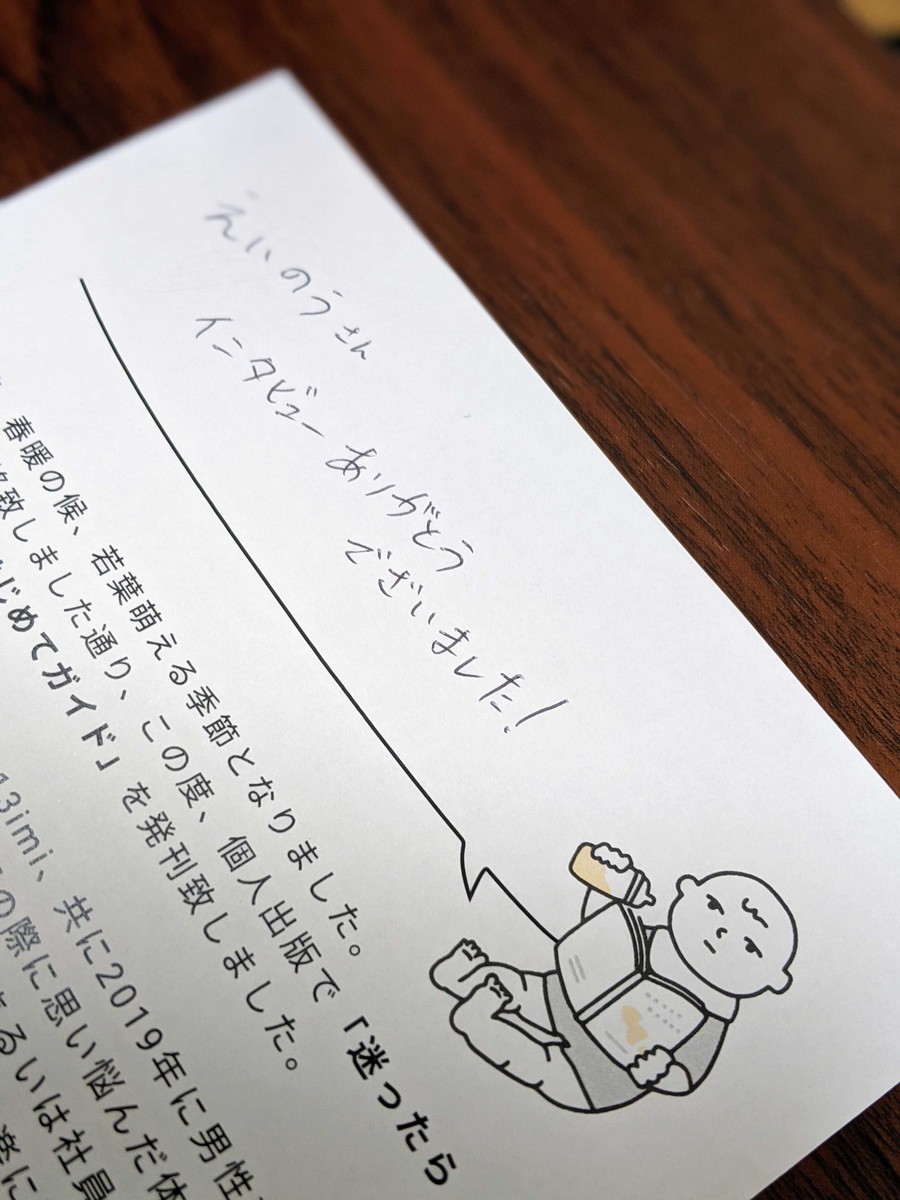 えいのうさん
インタビュー ありがとう
ございました!
春暖の候、若葉萌える季節となりました。
致しました通り、この度、個人出版で「迷ったら
じめてガイド」を発刊致しました。
13imi、共に2019年に男性
の際に思い悩んだ体
るいは社員
に